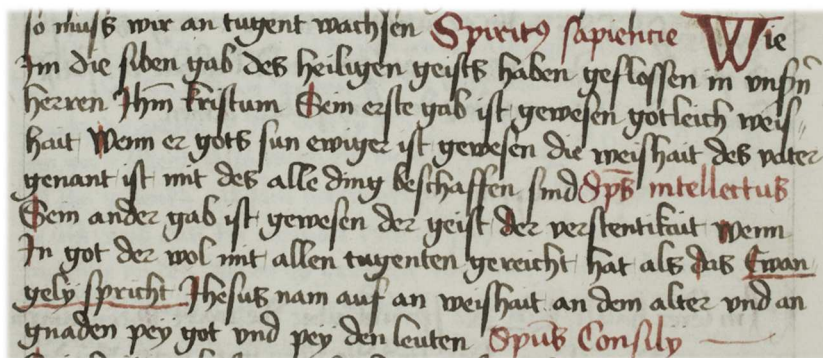 so muss wir an tugent wachsen Spiritꝰ sapiencie Wie
Im die siben gab des heiligen geists haben geflossen in vnsn̄
herren Jhm̄ kristum Sein erste gab ist gewesen gotleich weis//
hait Wenn er gots sun ewiger ist gewesen die weishait des vater
genant ist mit des alle ding beschaffen sind Sps̄ intellectus
Sein ander gab ist gewesen der geist der verstentikait wenn
In got der wol mit allen tugenten gereicht hat als das Ewan
gely spricht Jhesus nam auf an weishait an dem alter vnd an
gnaden pey got vnd pey den leuten Spūs Consily